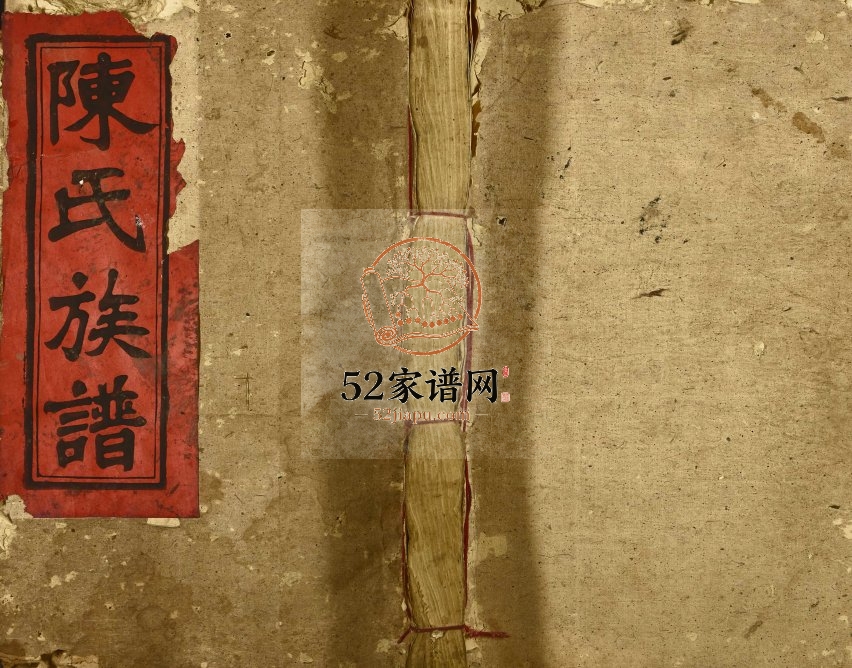 陳氏族譜
52家谱网
52jiapu.com